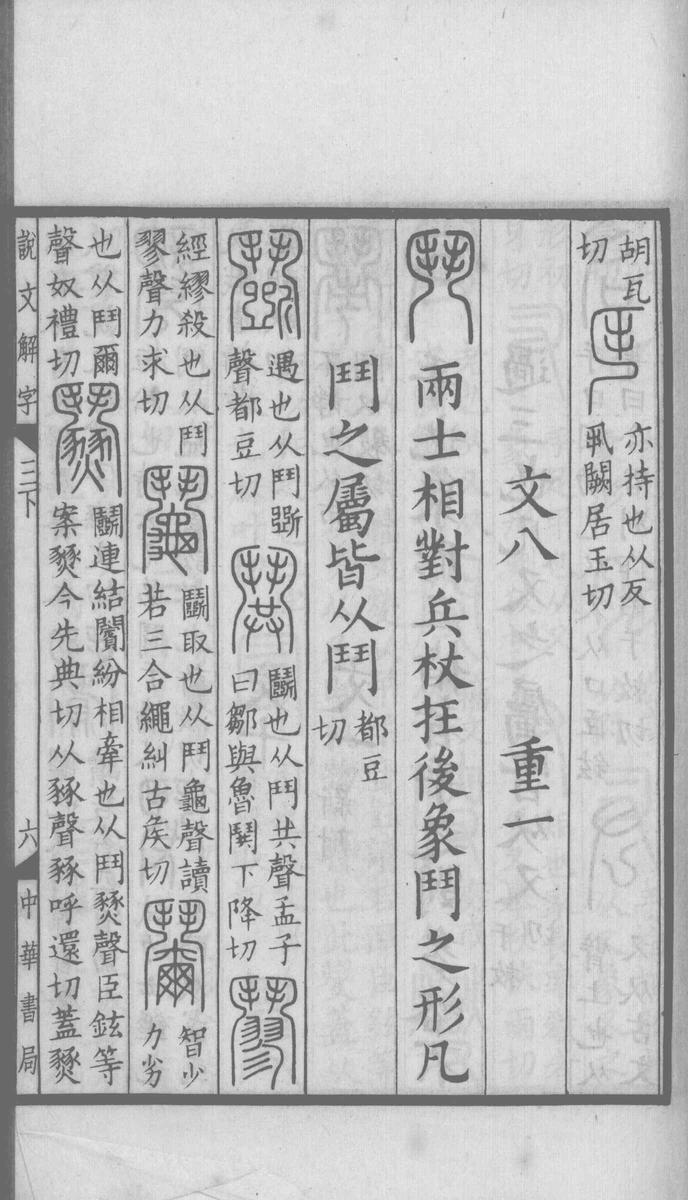 胡瓦
切
亦持也从反
丮闕居玉切
文八 重一
兩士相對兵杖在後象鬥之形凡
鬥之屬皆从鬥
都豆
切
遇也从鬥斲
聲都豆切
鬭也从鬥共聲孟子
曰鄒與魯鬨下降切
經繆殺也从鬥
翏聲力求切
鬭取也从鬥龜聲讀
若三合繩糾古矦切
智少
力劣
也从鬥爾
聲奴禮切
鬭連結鬢紛相牽也从鬥燹聲臣鉉等
案燹今先典切从豩聲豩呼還切蓋燹
說文解字 三下 六 中華書局